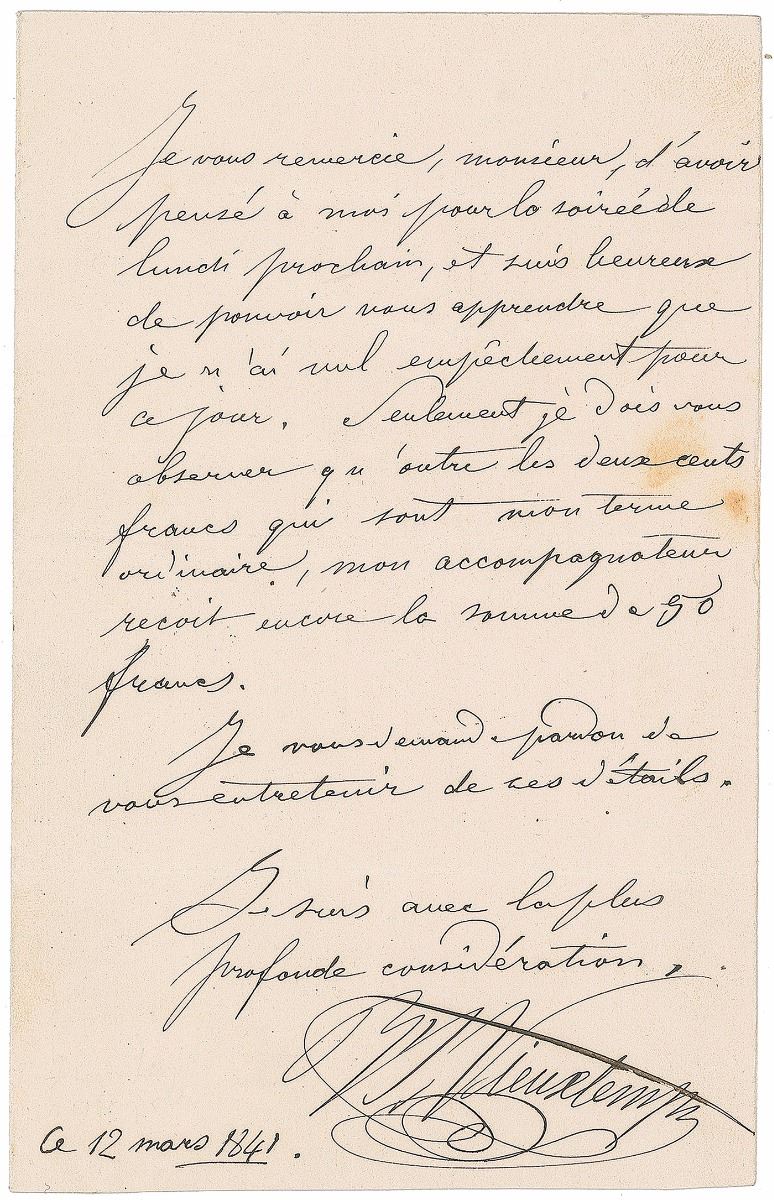 Je vous remercie, monsieur, d'avoir
pensé à moi pour la soirée de
lundi prochain, et suis heureux
de pouvoir vous apprendre que
je n'ai nul empêchement pour
ce jour. Seulement je dois vous
observer qu'outre les deux cents
francs qui sont mon terme
ordinaire, mon accompagnateur
reçoit encore la somme de 50
francs.
Je vous demande pardon de
vous entretenir de ces détails.
Je suis avec la plus
profonde considération,
H. Vieuxtemps
Ce 12 mars 1841.